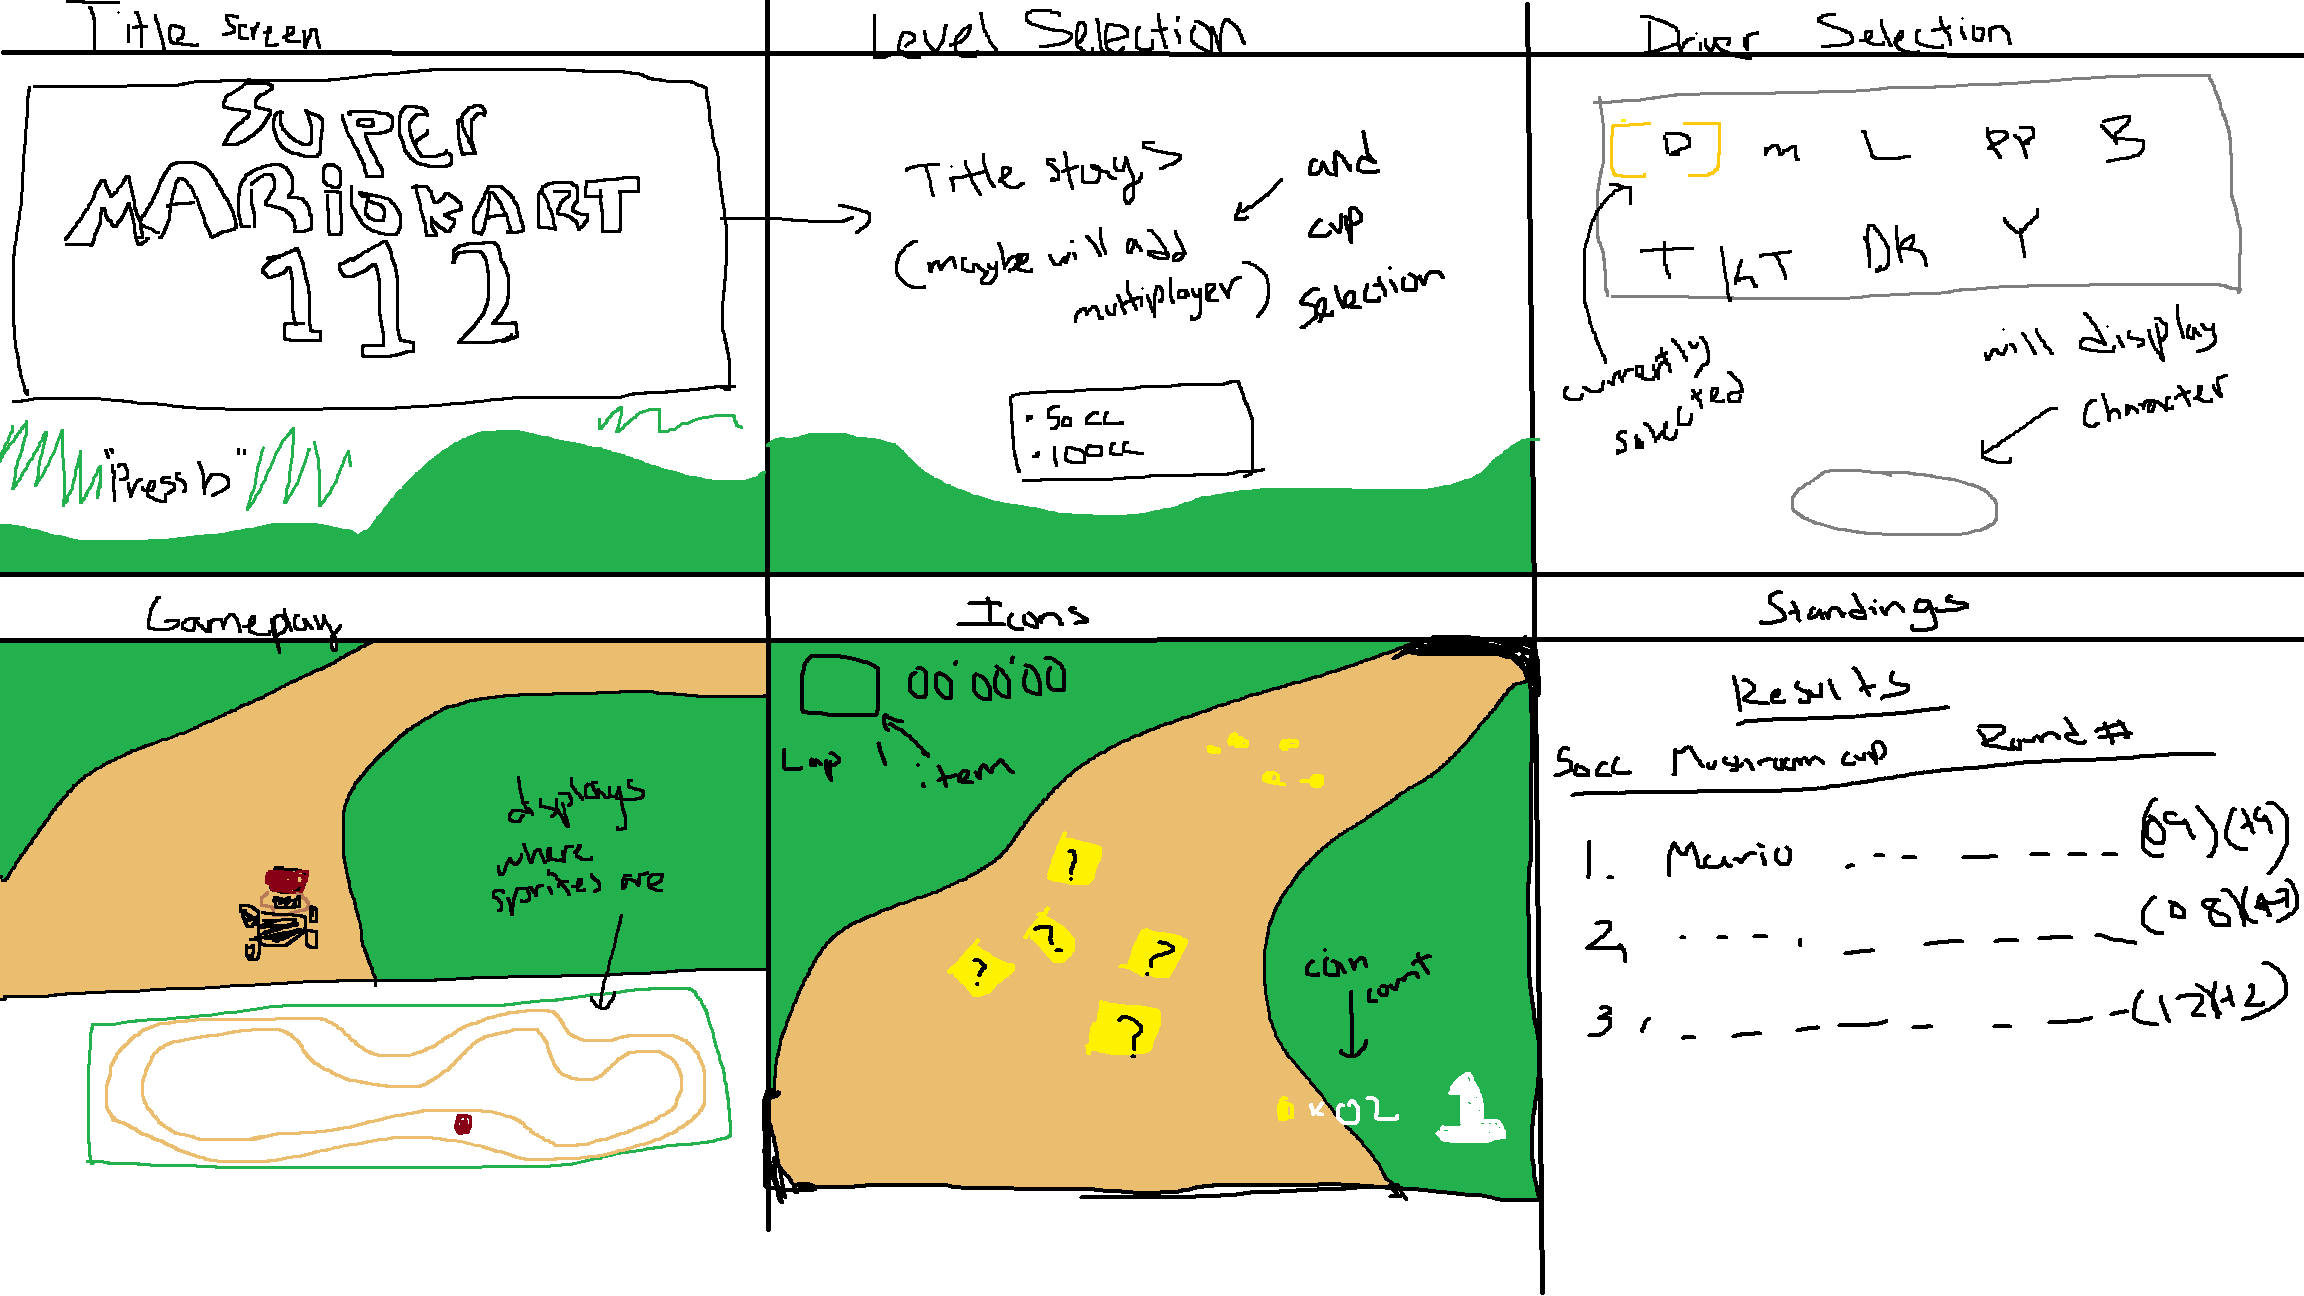 Title Screen
SUPER
MARiOKART
112
"Press b"
Level Selection
Title story
(maybe will add
multiplayer)
and
cup
selection
• 50 cc
• 100cc
Driver Selection
D m L PP B
T KT DK Y
currently
selected
will display
Character
Gameplay
displays
where
sprites are
Icons
00'00'00
Lap 1
item
?
?
?
?
?
coin
count
x02
1
Standings
Results
50cc Mushroom cup Round #
1. Mario
2.
3.